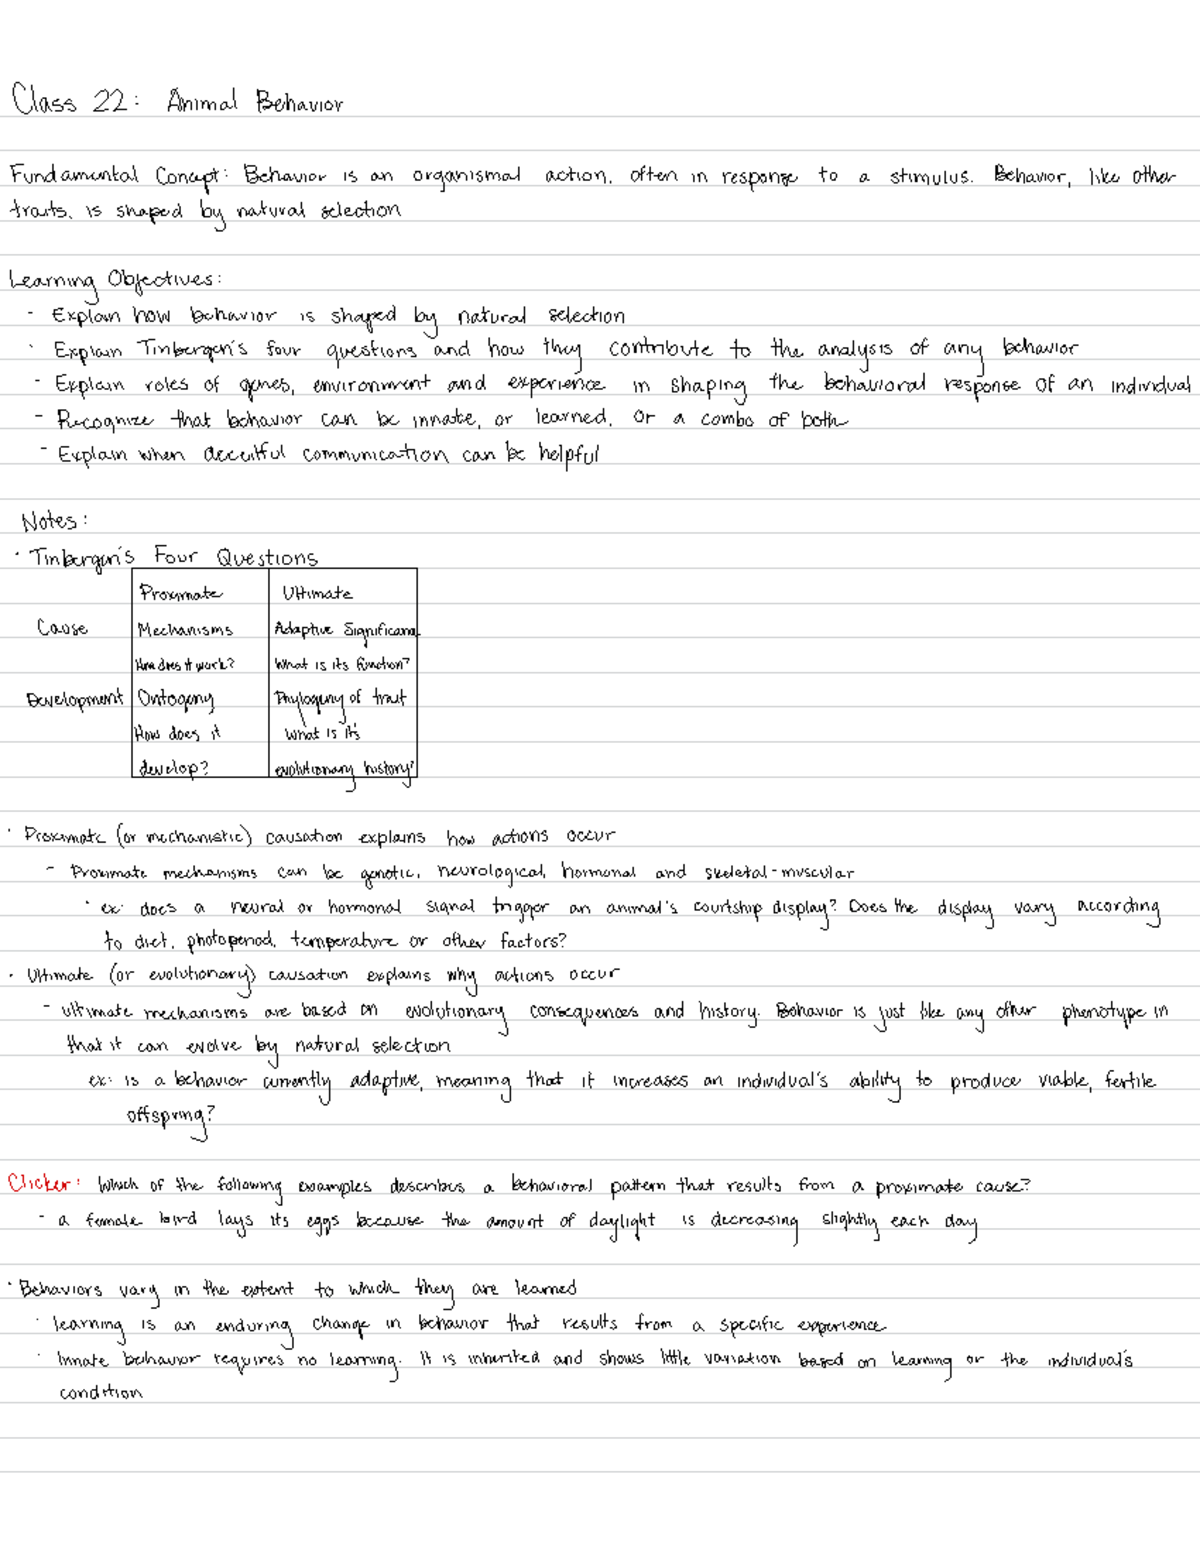 Class 22: Animal Behavior
Fundamental Concept: Behavior is an organismal action, often in response to a stimulus. Behavior, like other
traits, is shaped by natural selection
Learning Objectives:
- Explain how behavior is shaped by natural selection
· Explain Tinbergen's four questions and how they contribute to the analysis of any behavior
- Explain roles of genes, environment and experience in shaping the behavioral response of an individual
- Recognize that behavior can be innate, or learned, or a combo of both
- Explain when deceitful communication can be helpful
Notes:
· Tinbergen's Four Questions
Proximate Ultimate
Cause Mechanisms Adaptive Significance
How does it work? What is its function?
Development Ontogeny Phylogeny of trait
How does it What is it's
develop? evolutionary history?
· Proximate (or mechanistic) causation explains how actions occur
- Proximate mechanisms can be genetic, neurological, hormonal and skeletal-muscular
· ex: does a neural or hormonal signal trigger an animal's courtship display? Does the display vary according
to diet, photoperiod, temperature or other factors?
· Ultimate (or evolutionary) causation explains why actions occur
- ultimate mechanisms are based on evolutionary consequences and history. Behavior is just like any other phenotype in
that it can evolve by natural selection
ex: is a behavior currently adaptive, meaning that it increases an individual's ability to produce viable, fertile
offspring?
Clicker: Which of the following examples describes a behavioral pattern that results from a proximate cause?
- a female bird lays its eggs because the amount of daylight is decreasing slightly each day
· Behaviors vary in the extent to which they are learned
· learning is an enduring change in behavior that results from a specific experience
· Innate behavior requires no learning. It is inherited and shows little variation based on learning or the individual's
condition